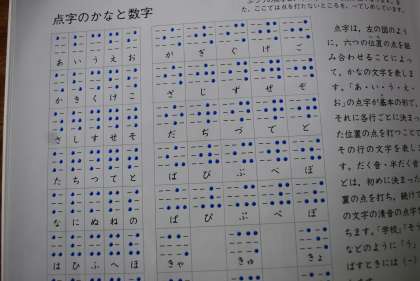 点字のかなと数字
あ い う え お
か き く け こ
さ し す せ そ
た ち つ て と
な に ぬ ね の
は ひ ふ へ ほ
が ぎ ぐ げ ご
ざ じ ず ぜ ぞ
だ ぢ づ で ど
ば び ぶ べ ぼ
ぱ ぴ ぷ ぺ ぽ
きゃ きゅ きょ
点字は、左の図のよう
に、六つの位置の点を組
み合わせることによっ
て、かなの文字を表しま
す。「あ・い・う・え・
お」の点字が基本の形で
それに各行ごとに決まっ
た位置の点を打つことで
その行の文字を表しま
す。だく音・半だく音
どは、初めに決まった
置の点を打ち、続けて
の文字の清音の点字
ちます。「学校」「そう
などのように「う」
ばすときには(ー)